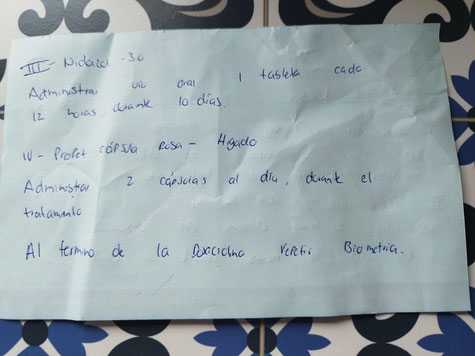 III- Nidazel -30
Administrar via oral 1 tableta cada
12 horas durante 10 días.
IV- ProPet cápsula rosa - Higado
Administrar 2 cápsulas al día, durante el
tratamiento.
Al termino de la Doxiciclina repetir Biometria.